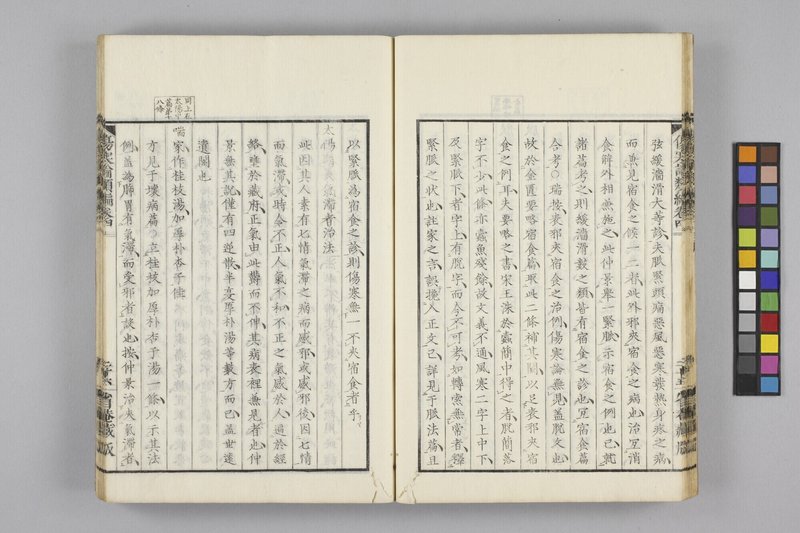 弦緩濇滑大等診夫脈緊頭痛惡風惡寒發熱身疼之病
而兼見宿食之候一二者此外邪夾宿食之病也治宜消
食解外相兼施之此仲景舉一緊脈示宿食之例也已就
諸篇考之則緩濇滑數之類皆有宿食之診也宜宿食篇
合考○瑞按表邪夾宿食之治例傷寒論無見蓋脫文也
故於金匱要略宿食篇取此二條補其闕以足表邪夾宿
食之例耳夫要略之書宋王洙於蠹簡中得之者脫簡落
字不少此條亦蠹魚殘餘故文義不通風寒二字上中下
及緊脈下者字上有脫字而今不可考如轉索無常者釋
緊脈之狀也註家之言誤攙入正文已詳見于脈法篇且
以緊脈為宿食之診則傷寒無一不夾宿食者乎
太陽病夾氣滯者治法
此因其人素有七情氣滯之病而感邪或感邪後因七情
而氣滯或時令不正人氣不和不正之氣感於人迫於經
絡壅於藏府正氣由此鬱而不伸其病表裡兼見者也仲
景無其說僅有四逆散半夏厚朴湯等數方而已蓋世遠
遺闕也
喘家作桂枝湯加厚朴杏子佳
才見于壞病篇○立桂枝加厚朴杏子湯一條以示其法
例蓋為脾胃有氣滯而受邪者設也按仲景治夾氣滯者
傷寒論類編卷四